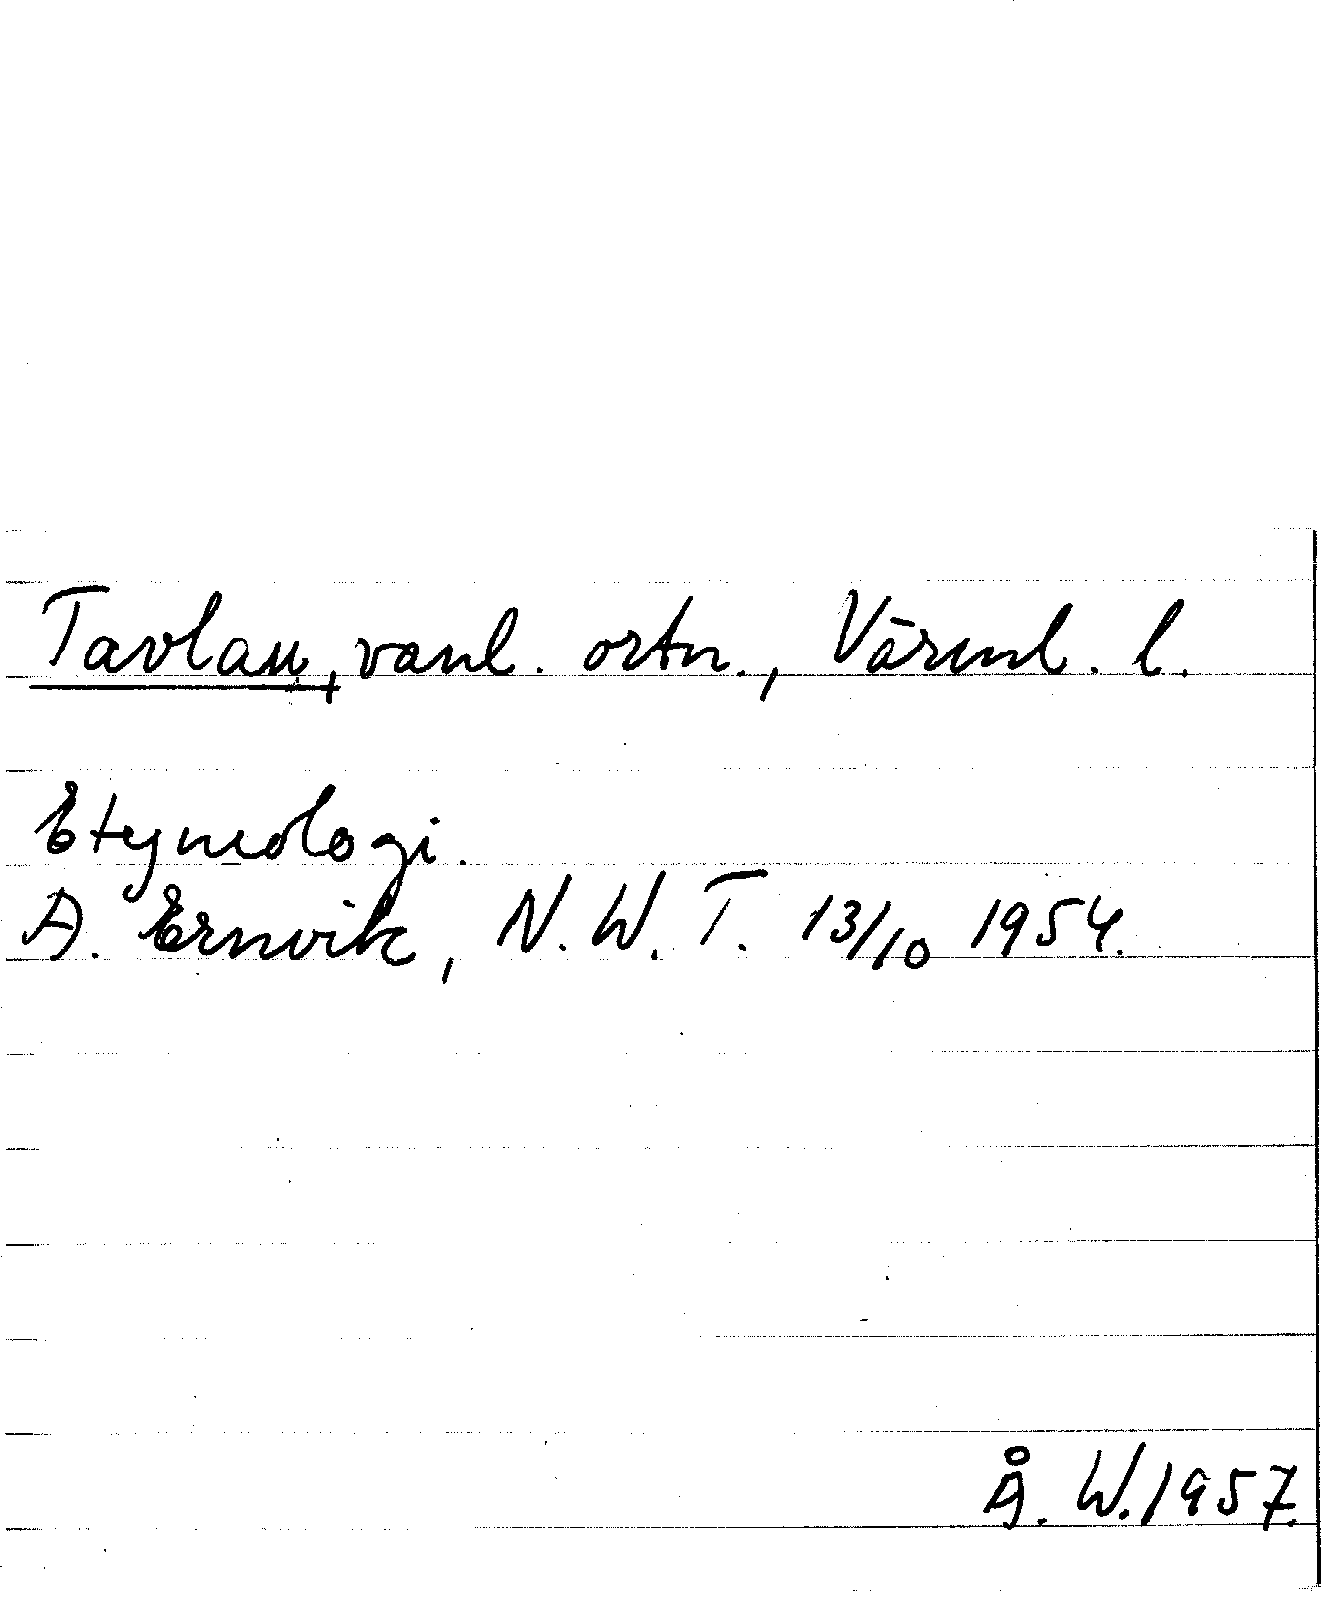 Tavlan, vanl. ortn., Värml. l.
Etymologi.
A. Ernvik, N.W.T. 13/10 1954.
Å. W. 1957.